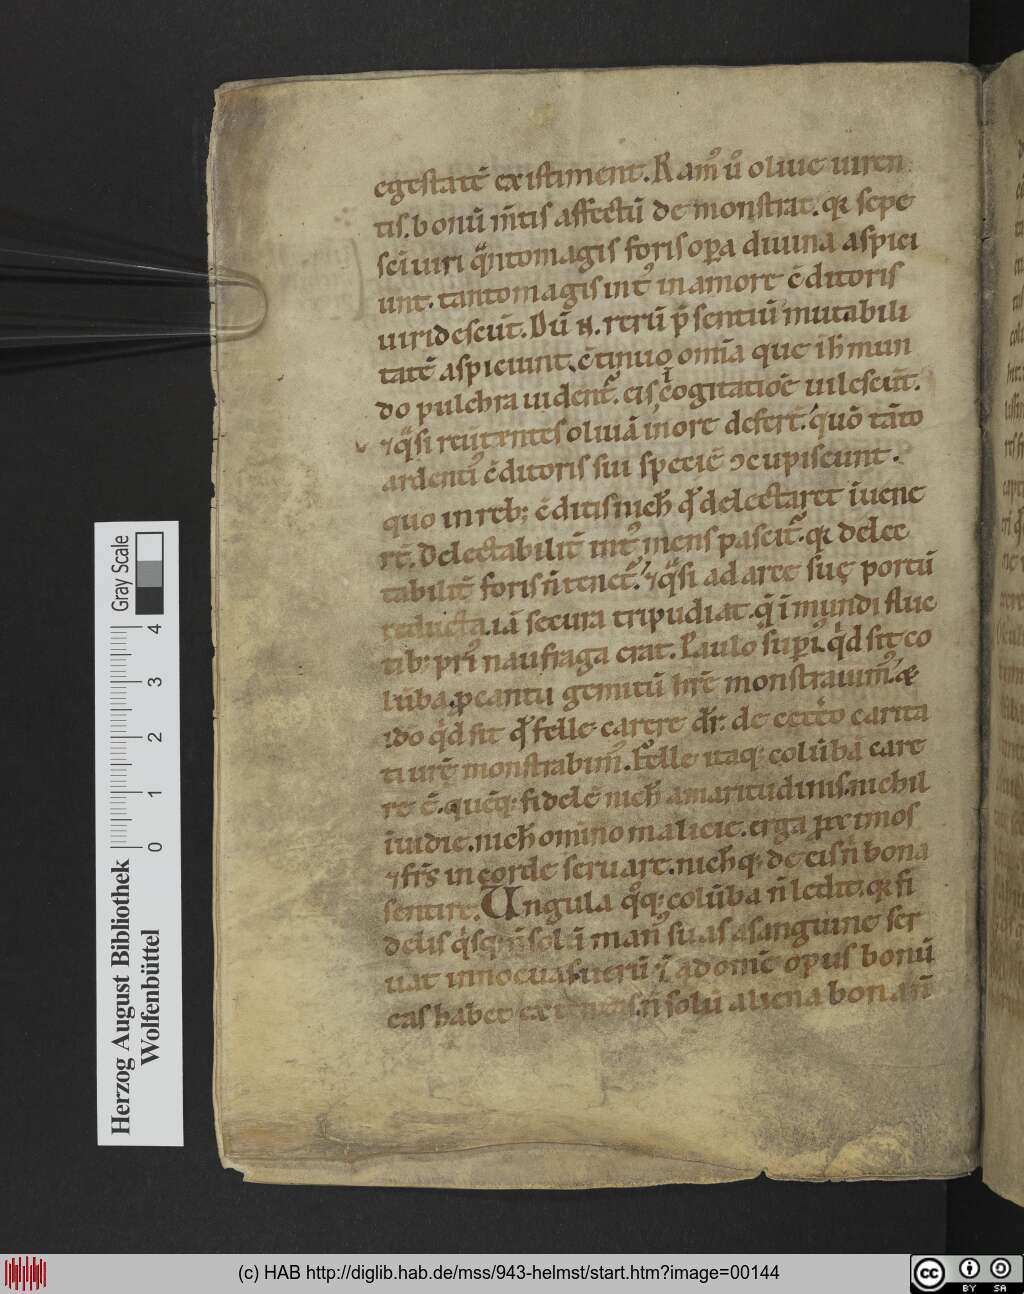 egestatē existiment. Ramꝰ ů oliue uiren
tis. bonū m̄tis affectū demonstrat. qꝛ sepe
sc̄i uiri qͣntomagis foris oꝑa diuina aspici
unt. tantomagis intꝰ in amore ↄ̄ditoris
uiridescūt. Dū .n. rerū p̄sentiū mutabili
tatē aspiciunt. ↄ̄tinuo om̄ia que ī hͦ mun
do pulchra uident᷑. eis ī cogitatiōe uilescūt.
⁊ qͣsi reutentes oliuā in ore defert. quō tāto
ardentiꝰ ↄ̄ditoris sui speciē ↄcupiscunt.
quo in rebꝫ ↄ̄ditis nich̄ qͦd delectaret īuene
rt̄. Delectabilit̄ intꝰ mens pascit᷑. qꝛ delec
tabilit̄ foris n̄ tenet᷑. ⁊ qͣsi ad arce suę portū
reducta. iā secura tripudiat. q̄ ī mundi fluc
tibꝫ priꝰ naufraga erat. Paulo supiꝰ. qͥd sit co
lūba. p cantu gemitū hr̄e monstrauimꝰ. ⁊
ido qͥd sit qͦd felle carere dr̄. de cetͦo carita
ti ur̄ę monstrabimꝰ. Felle itaqꝫ colūba care
re ē. quēqꝫ fidelē nich̄ amaritudinis. nichil
īuidie. nich̄ omino malicie. erga ꝓximos
⁊ fr̄s in corde seruare. nich̄qꝫ de eis n̄ bona
sentire. Ungula qͦqꝫ colūba n̄ ledit. qꝛ fi
delis qͥsqꝫ n̄ solū manꝰ suas a sanguine ser
uat innocuas. uerū ⁊ ad om̄e opus bonū
eas habet n̄ solū aliena bona n̄
Herzog August Bibliothek
Wolfenbüttel
Gray Scale
0 1 2 3 4
(c) HAB http://diglib.hab.de/mss/943-helmst/start.htm?image=00144
cc BY SA